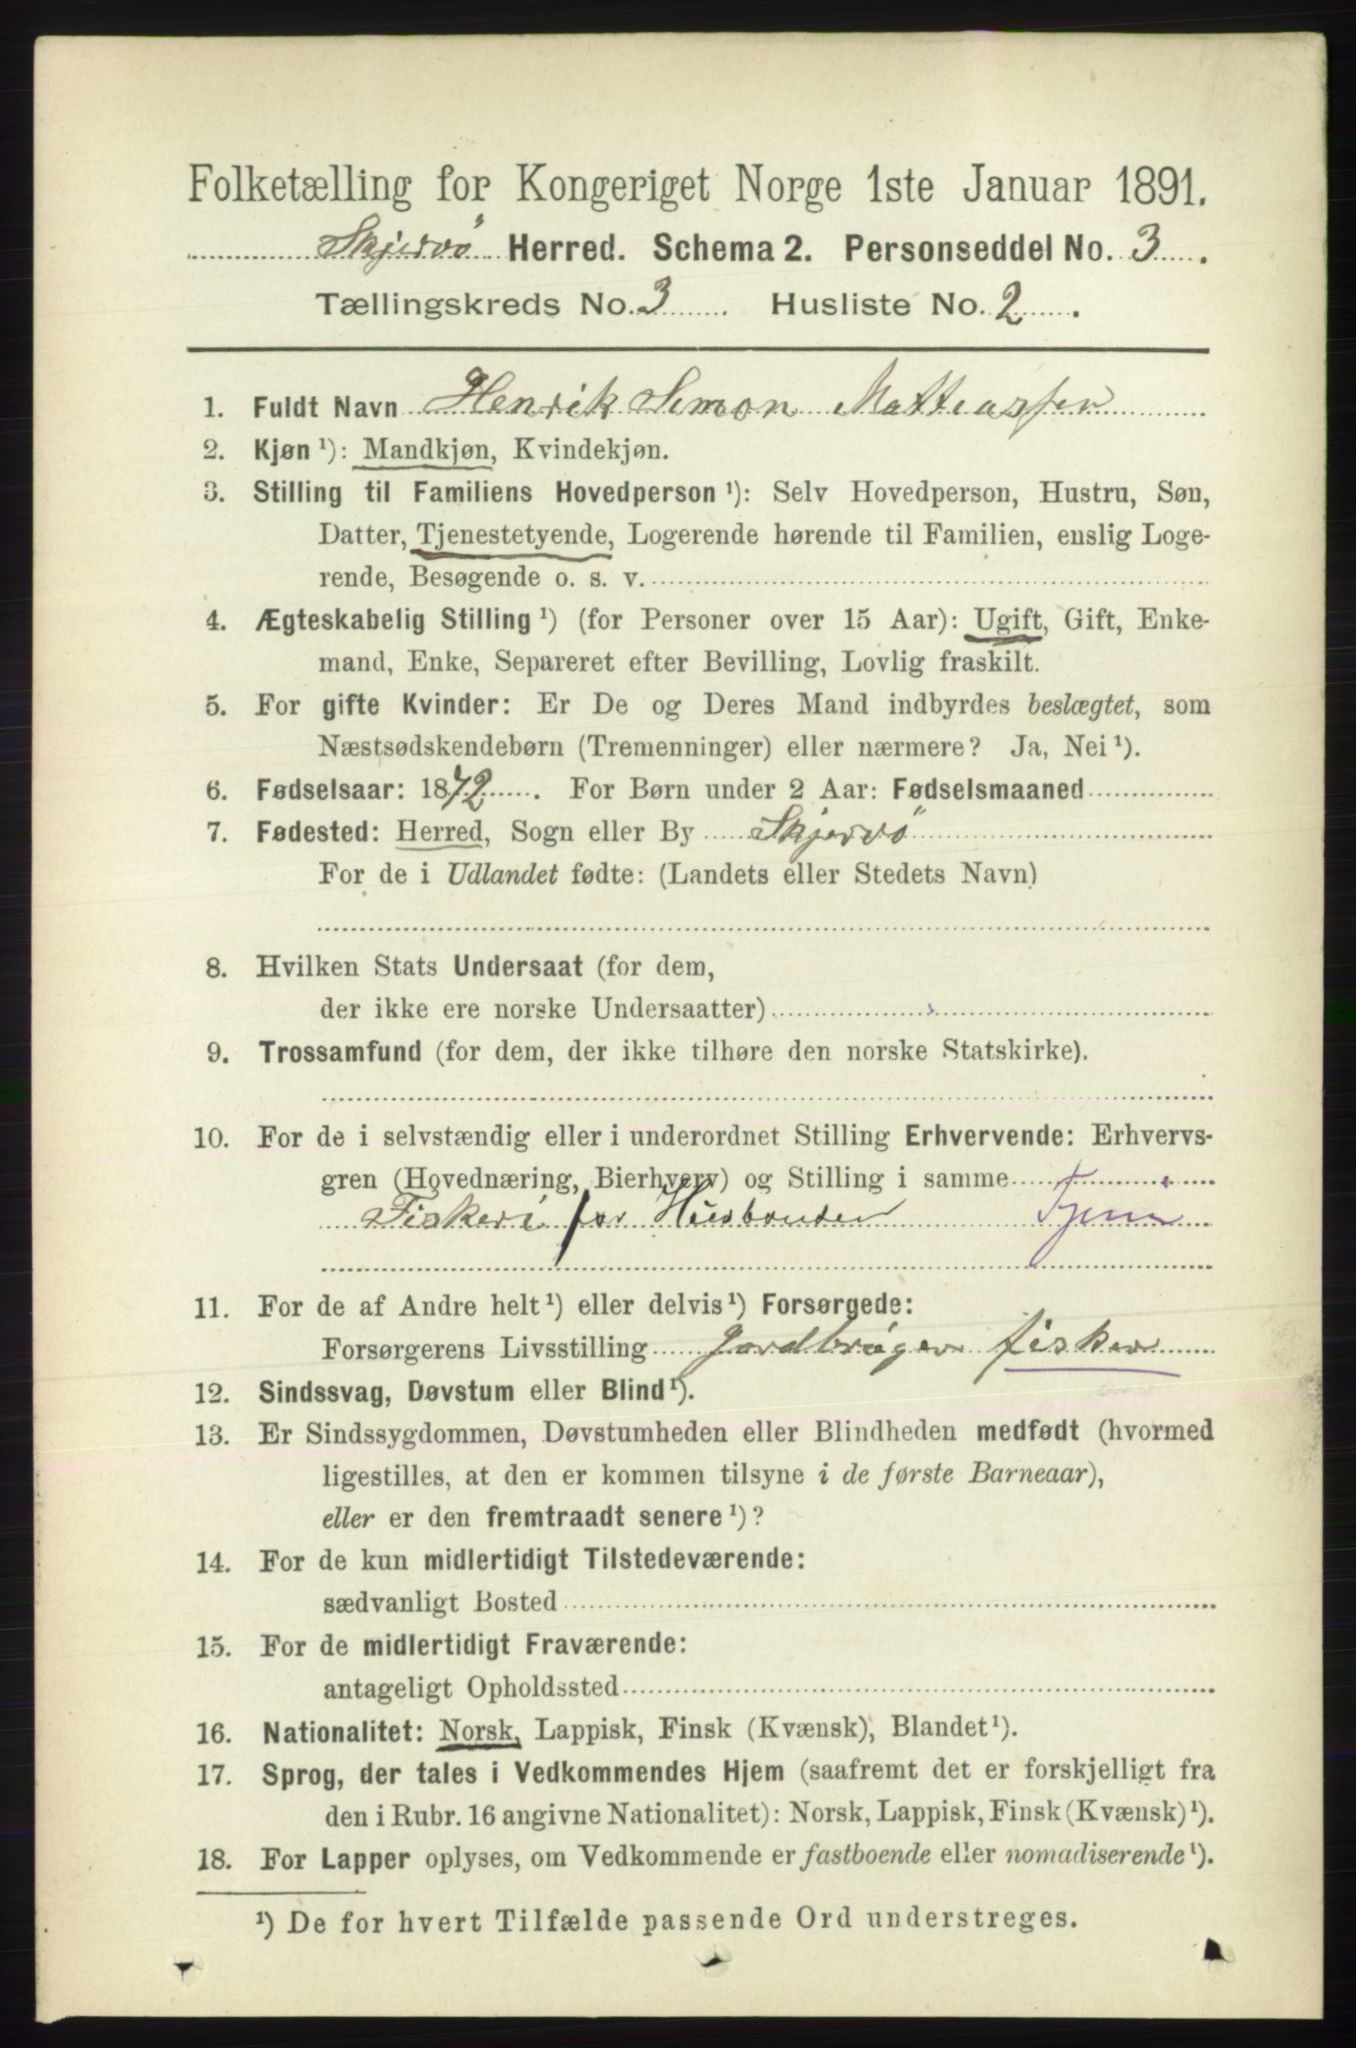 Folketælling for Kongeriget Norge 1ste Januar 1891.
Skjervö Herred. Schema 2. Personseddel No. 3.
Tællingskreds No. 3 Husliste No. 2.
1. Fuldt Navn Henrik Simon Matteassen
2. Kjøn ¹): Mandkjøn, Kvindekjøn.
3. Stilling til Familiens Hovedperson ¹): Selv Hovedperson, Hustru, Søn,
Datter, Tjenestetyende, Logerende hørende til Familien, enslig Loge-
rende, Besøgende o. s. v.
4. Ægteskabelig Stilling ¹) (for Personer over 15 Aar): Ugift, Gift, Enke-
mand, Enke, Separeret efter Bevilling, Lovlig fraskilt.
5. For gifte Kvinder: Er De og Deres Mand indbyrdes beslægtet, som
Næstsødskendebørn (Tremenninger) eller nærmere? Ja, Nei ¹).
6. Fødselsaar: 1872. For Børn under 2 Aar: Fødselsmaaned
7. Fødested: Herred, Sogn eller By Skjervö
For de i Udlandet fødte: (Landets eller Stedets Navn)
8. Hvilken Stats Undersaat (for dem,
der ikke ere norske Undersaatter)
9. Trossamfund (for dem, der ikke tilhøre den norske Statskirke).
10. For de i selvstændig eller i underordnet Stilling Erhvervende: Erhvervs-
gren (Hovednæring, Bierhverv) og Stilling i samme
Fiskeri for Husbonden Tjener
11. For de af Andre helt ¹) eller delvis ¹) Forsørgede:
Forsørgerens Livsstilling Jordbruger fisker
12. Sindssvag, Døvstum eller Blind ¹).
13. Er Sindssygdommen, Døvstumheden eller Blindheden medfødt (hvormed
ligestilles, at den er kommen tilsyne i de første Barneaar),
eller er den fremtraadt senere ¹)?
14. For de kun midlertidigt Tilstedeværende:
sædvanligt Bosted
15. For de midlertidigt Fraværende:
antageligt Opholdssted
16. Nationalitet: Norsk, Lappisk, Finsk (Kvænsk), Blandet ¹).
17. Sprog, der tales i Vedkommendes Hjem (saafremt det er forskjelligt fra
den i Rubr. 16 angivne Nationalitet): Norsk, Lappisk, Finsk (Kvænsk) ¹).
18. For Lapper oplyses, om Vedkommende er fastboende eller nomadiserende ¹).
¹) De for hvert Tilfælde passende Ord understreges.